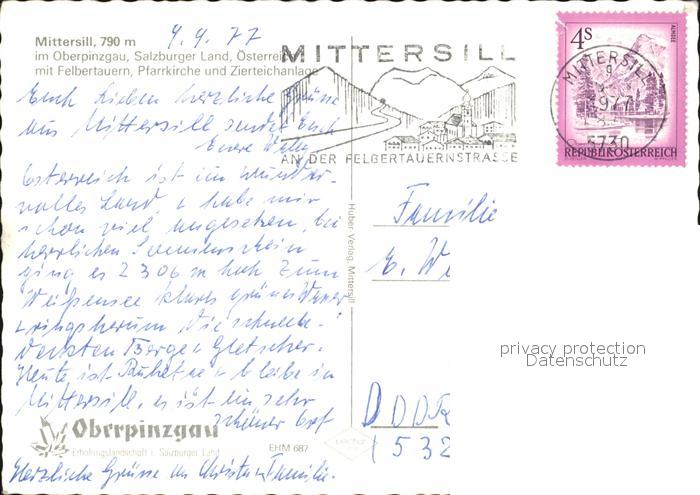 Mittersill, 790 m
9.9.77
im Oberpinzgau, Salzburger Land, Österreich
mit Felbertauern, Pfarrkirche und Zierteichanlage
MITTERSILL
AN DER FELBERTAUERNSTRASSE
4s
ALMSEE
MITTERSILL
9
1977
5730
REPUBLIK ÖSTERREICH
Euch Lieben herzliche Grüsse
aus Mittersill sendet Euch
Euere
Österreich ist ein wunder-
volles Land, u habe mir
schon viel angesehen, bei
herrlichen Sonnenschein
ging es 2306 m hoch zum
Weißensee klares grünes Wasser
u ringsherum die schneebe-
deckten Berge u Gletscher.
Heute ist Ruhetag u bleibe in
Mittersill, es ist ein sehr
schöner Ort
Familie
E. We
DDDR
1532
Huber-Verlag, Mittersill
privacy protection
Datenschutz
Oberpinzgau
Erholungslandschaft i. Salzburger Land
EHM 687
Herzliche Grüsse an Christa u Familie.